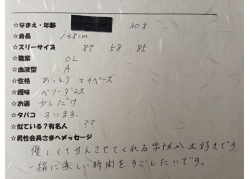 ☆なまえ・年齢 30才
☆身長 148cm
☆スリーサイズ 87 58 85
☆職業 OL
☆血液型 A
☆性格 おっとり マイペース
☆趣味 ベリーダンス
☆お酒 少しだけ
☆タバコ すいます。
☆似ている?有名人 ??
☆男性会員さまへメッセージ
優しくて甘えさせてくれる男性が大好きです
一緒に楽しい時間をすごしたいです。